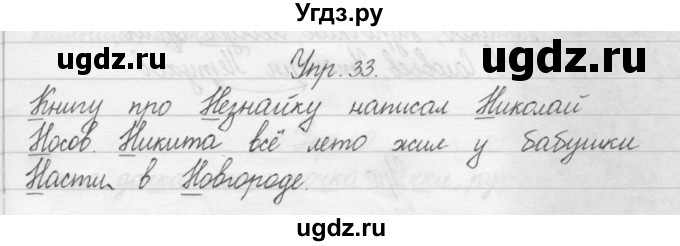 Угдз.ру
ugdz.ru
ugdz.ru
Упр. 33.
Книгу про Незнайку написал Николай
Носов. Никита всё лето жил у бабушки
Насти в Новгороде.
ugdz.ru
ugdz.ru
ugdz.ru